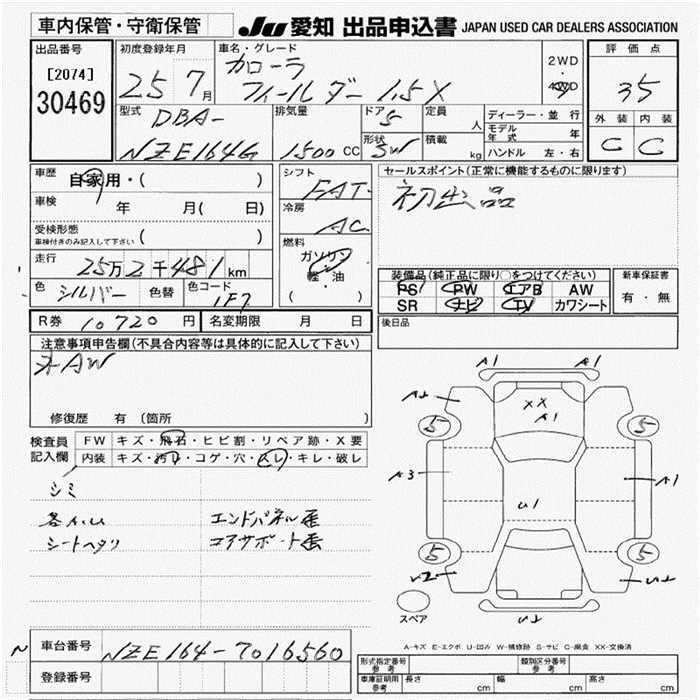 車内保管・守衛保管
JU 愛知 出品申込書 JAPAN USED CAR DEALERS ASSOCIATION
出品番号
[2074]
30469
初度登録年月
25 7月
車名・グレード
カローラ
フィールダー 1.5X
2WD
・
4WD
評価点
35
外装 内装
C C
型式
DBA-
NZE164G
排気量
1500 CC
ドア
5
形状
SW
定員
人
積載
kg
ディーラー・並行
モデル年式 年
ハンドル 左・右
車歴
自家用・( )
車検
年 月( 日)
受検形態
車検付きのみ記入して下さい ( )
走行
25万2千481km
色
シルバー
色替
色コード
1F7
シフト
FAT
冷房
AC
燃料
ガソリン
軽・油
( )
セールスポイント(正常に機能するものに限ります)
初出品
装備品(純正品に限り○をつけてください)
PS PW エアB AW
SR ナビ TV カワシート
新車保証書
有・無
R券 10720円
名変期限 月 日
後日品
注意事項申告欄(不具合内容等は具体的に記入して下さい)
AW
修復歴 有 (箇所
検査員
記入欄
FW キズ・飛石・ヒビ割・リペア跡・X要
内装 キズ・汚れ・コゲ・穴・スレ・キレ・破レ
シミ
シートヘタリ
エンドパネル歪
コアサポート歪
A1 A1
A2
XX
A1
5 5
A3
A1
U1
5 5
U2
U2
U2
スペア
A-キズ E-エクボ U-凹み W-補修跡 S-サビ C-腐食 XX-交換済
車台番号
NZE164-7016560
登録番号
形式指定番号
参考
類別区分番号
参考
車庫証明用
参考
長さ cm
幅 cm
高さ cm